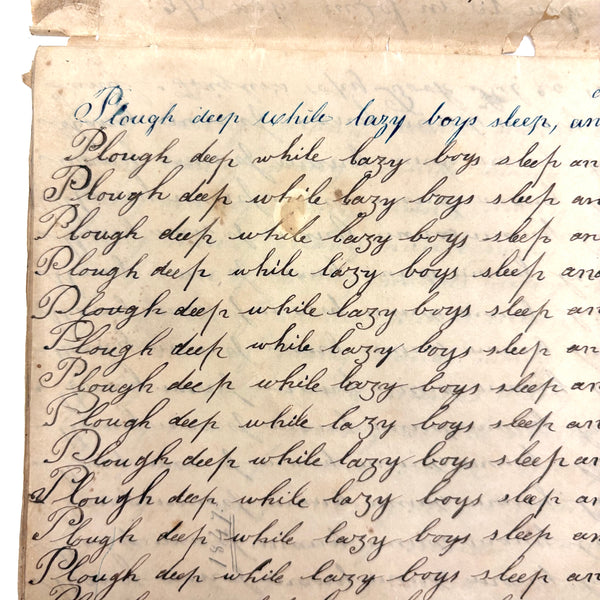 Plough deep while lazy boys sleep, an
Plough deep while lazy boys sleep an
Plough deep while lazy boys sleep an
Plough deep while lazy boys sleep an
Plough deep while lazy boys sleep and
Plough deep while lazy boys sleep an
Plough deep while lazy boys sleep an
Plough deep while lazy boys sleep an
Plough deep while lazy boys sleep an
Plough deep while lazy boys sleep an
Plough deep while lazy boys sleep an
Plough deep while lazy boys sleep an
Plough deep while lazy boys sleep an
1847.